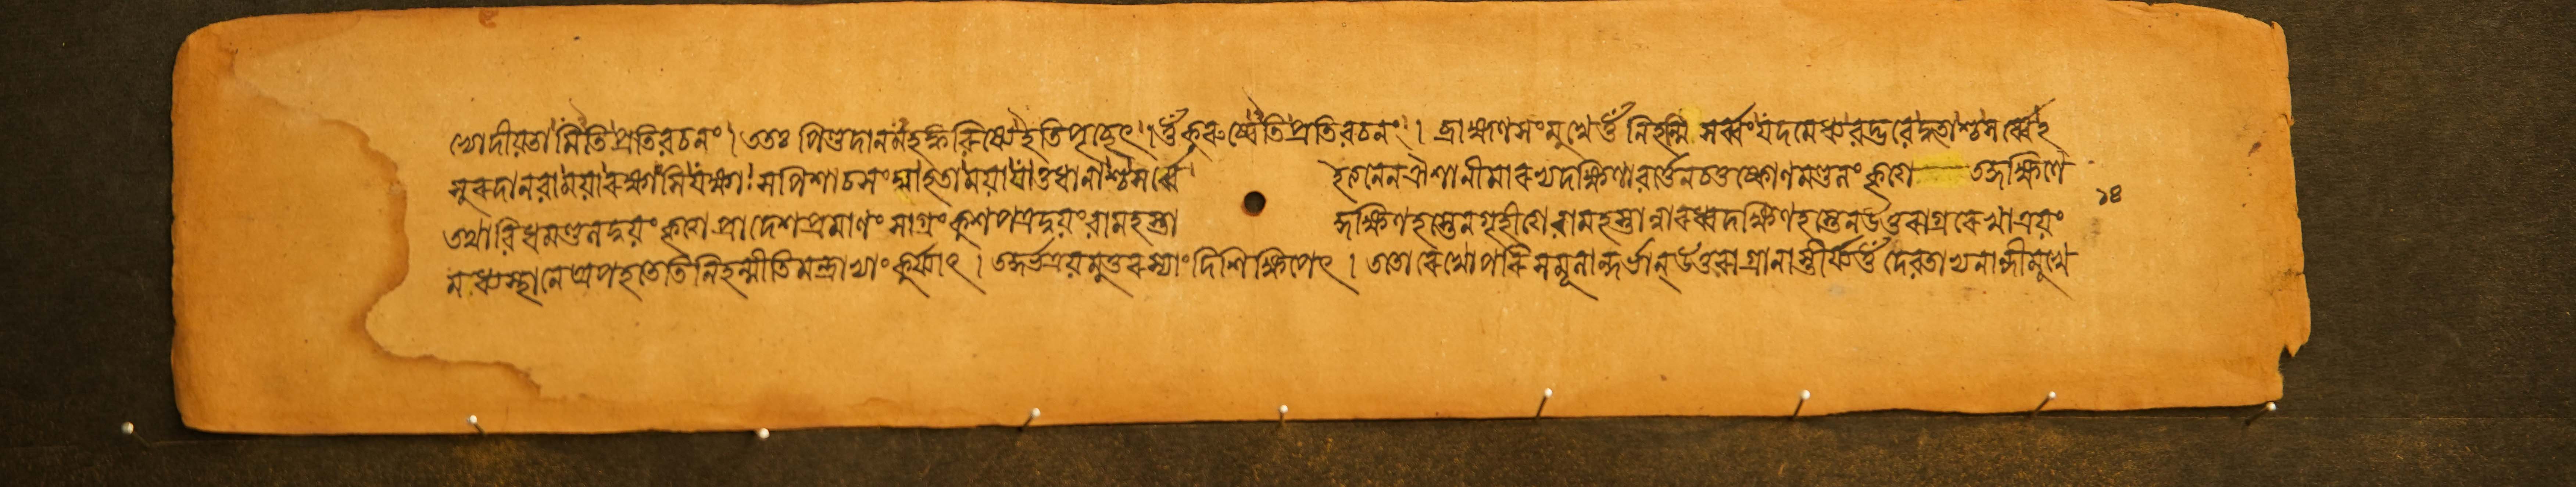 থোদীয়তামিতিপ্রতিবচনং। ততঃ পিণ্ডদানমহং করিষ্যে ইতিপৃচ্ছেৎ। ওঁ কুরুষ্বেতিপ্রতিবচনং। ব্রাহ্মণসংমুখে ওঁ নিহন্মি সর্ব্বং যদমেধ্যবদ্ভবেদ্ধতাশ্চসর্ব্বেহ
সুরদানবাময়া রক্ষাংসিযক্ষাঃ সপিশাচসংঘাহতাময়াযাতুধানাশ্চসর্ব্বে ইত্যনেনঐশানীমারভ্যদক্ষিণাবর্ত্তেনচতুষ্কোণমণ্ডলং কৃত্বা তদ্দক্ষিণে ১৪
তথাবিধমণ্ডলদ্বয়ং কৃত্বা প্রাদেশপ্রমাণং সাগ্রং কুশপত্রদ্বয়ং বামহস্তা দ্দক্ষিণহস্তেনগৃহীত্বা বামহস্তান্বারব্ধদক্ষিণহস্তেনউত্তরাগ্ররেখাত্রয়ং
মধ্যস্থানেঅপহতেতিনিহন্মীতিমন্ত্রাভ্যাং কুর্য্যাৎ। তদ্দর্ভত্রয়মুত্তরস্যাং দিশিক্ষিপেৎ। ততো রেখোপরি সমূলান্দর্ভান্উত্তরাগ্রানাস্তীর্য্য ওঁ দেবতাভ্য নান্দীমুখে